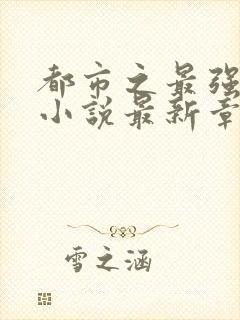 都市之最强
小说最新章
雪之涵